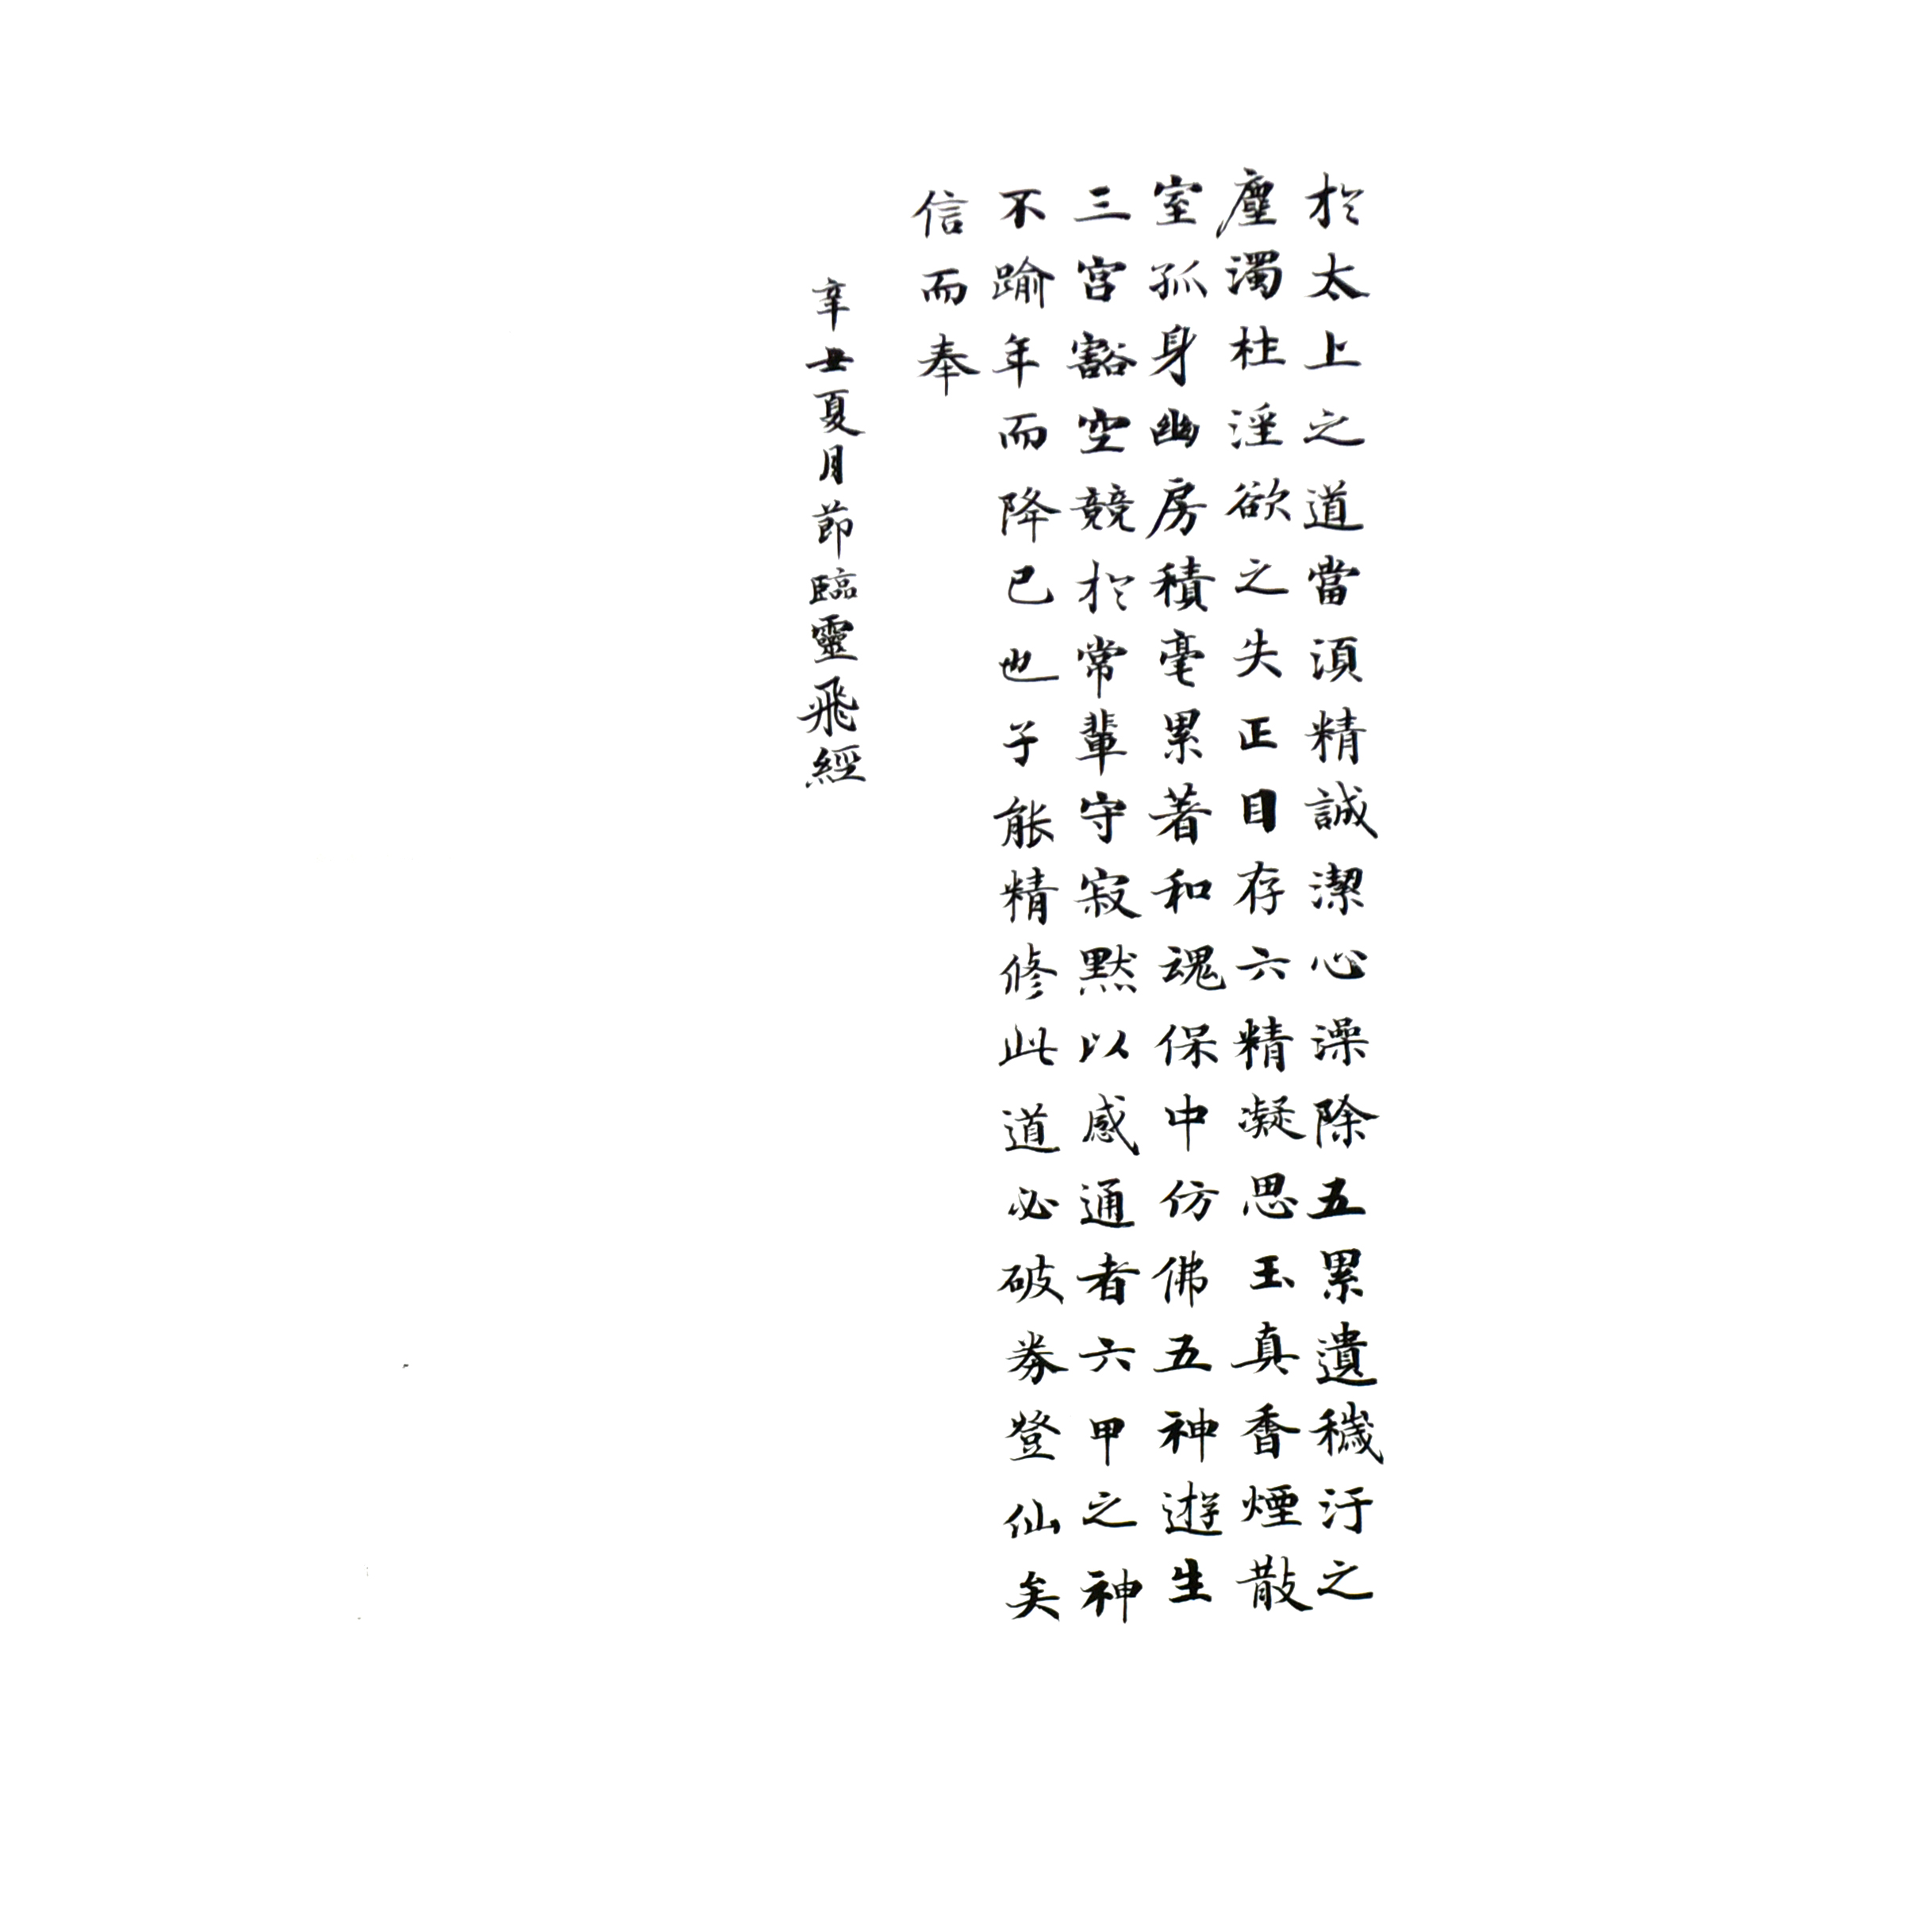 於太上之道當須精誠潔心澡除五累遺穢汙之
塵濁杜淫欲之失正目存六精凝思玉真香煙散
室孤身幽房積毫累著和魂保中仿佛五神遊生
三宮豁空競於常輩守寂默以感通者六甲之神
不踰年而降已也子能精修此道必破券登仙矣
信而奉
辛丑夏月節臨靈飛經